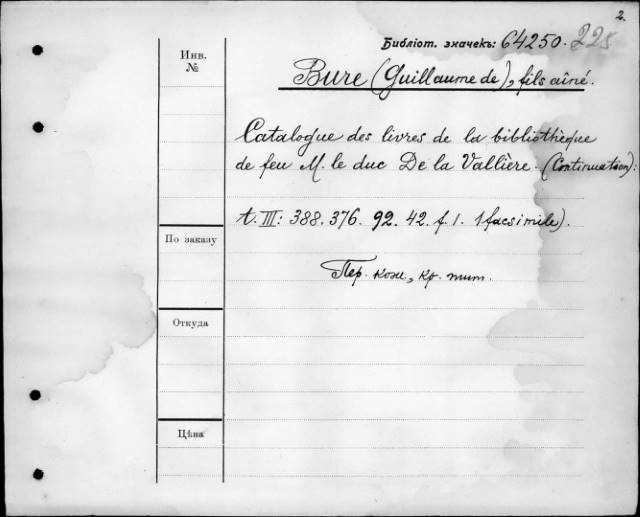 2.
Библіот. значекъ: 64250. 225
Инв.
№
Bure (Guillaume de), fils aîné.
Catalogue des livres de la bibliothèque
de feu M. le duc De la Vallière. (Continuation):
t. III: 388. 376. 92. 42. f. 1. 1 facsimile).
По заказу
Пер. кож., кр. тит.
Откуда
Цѣна